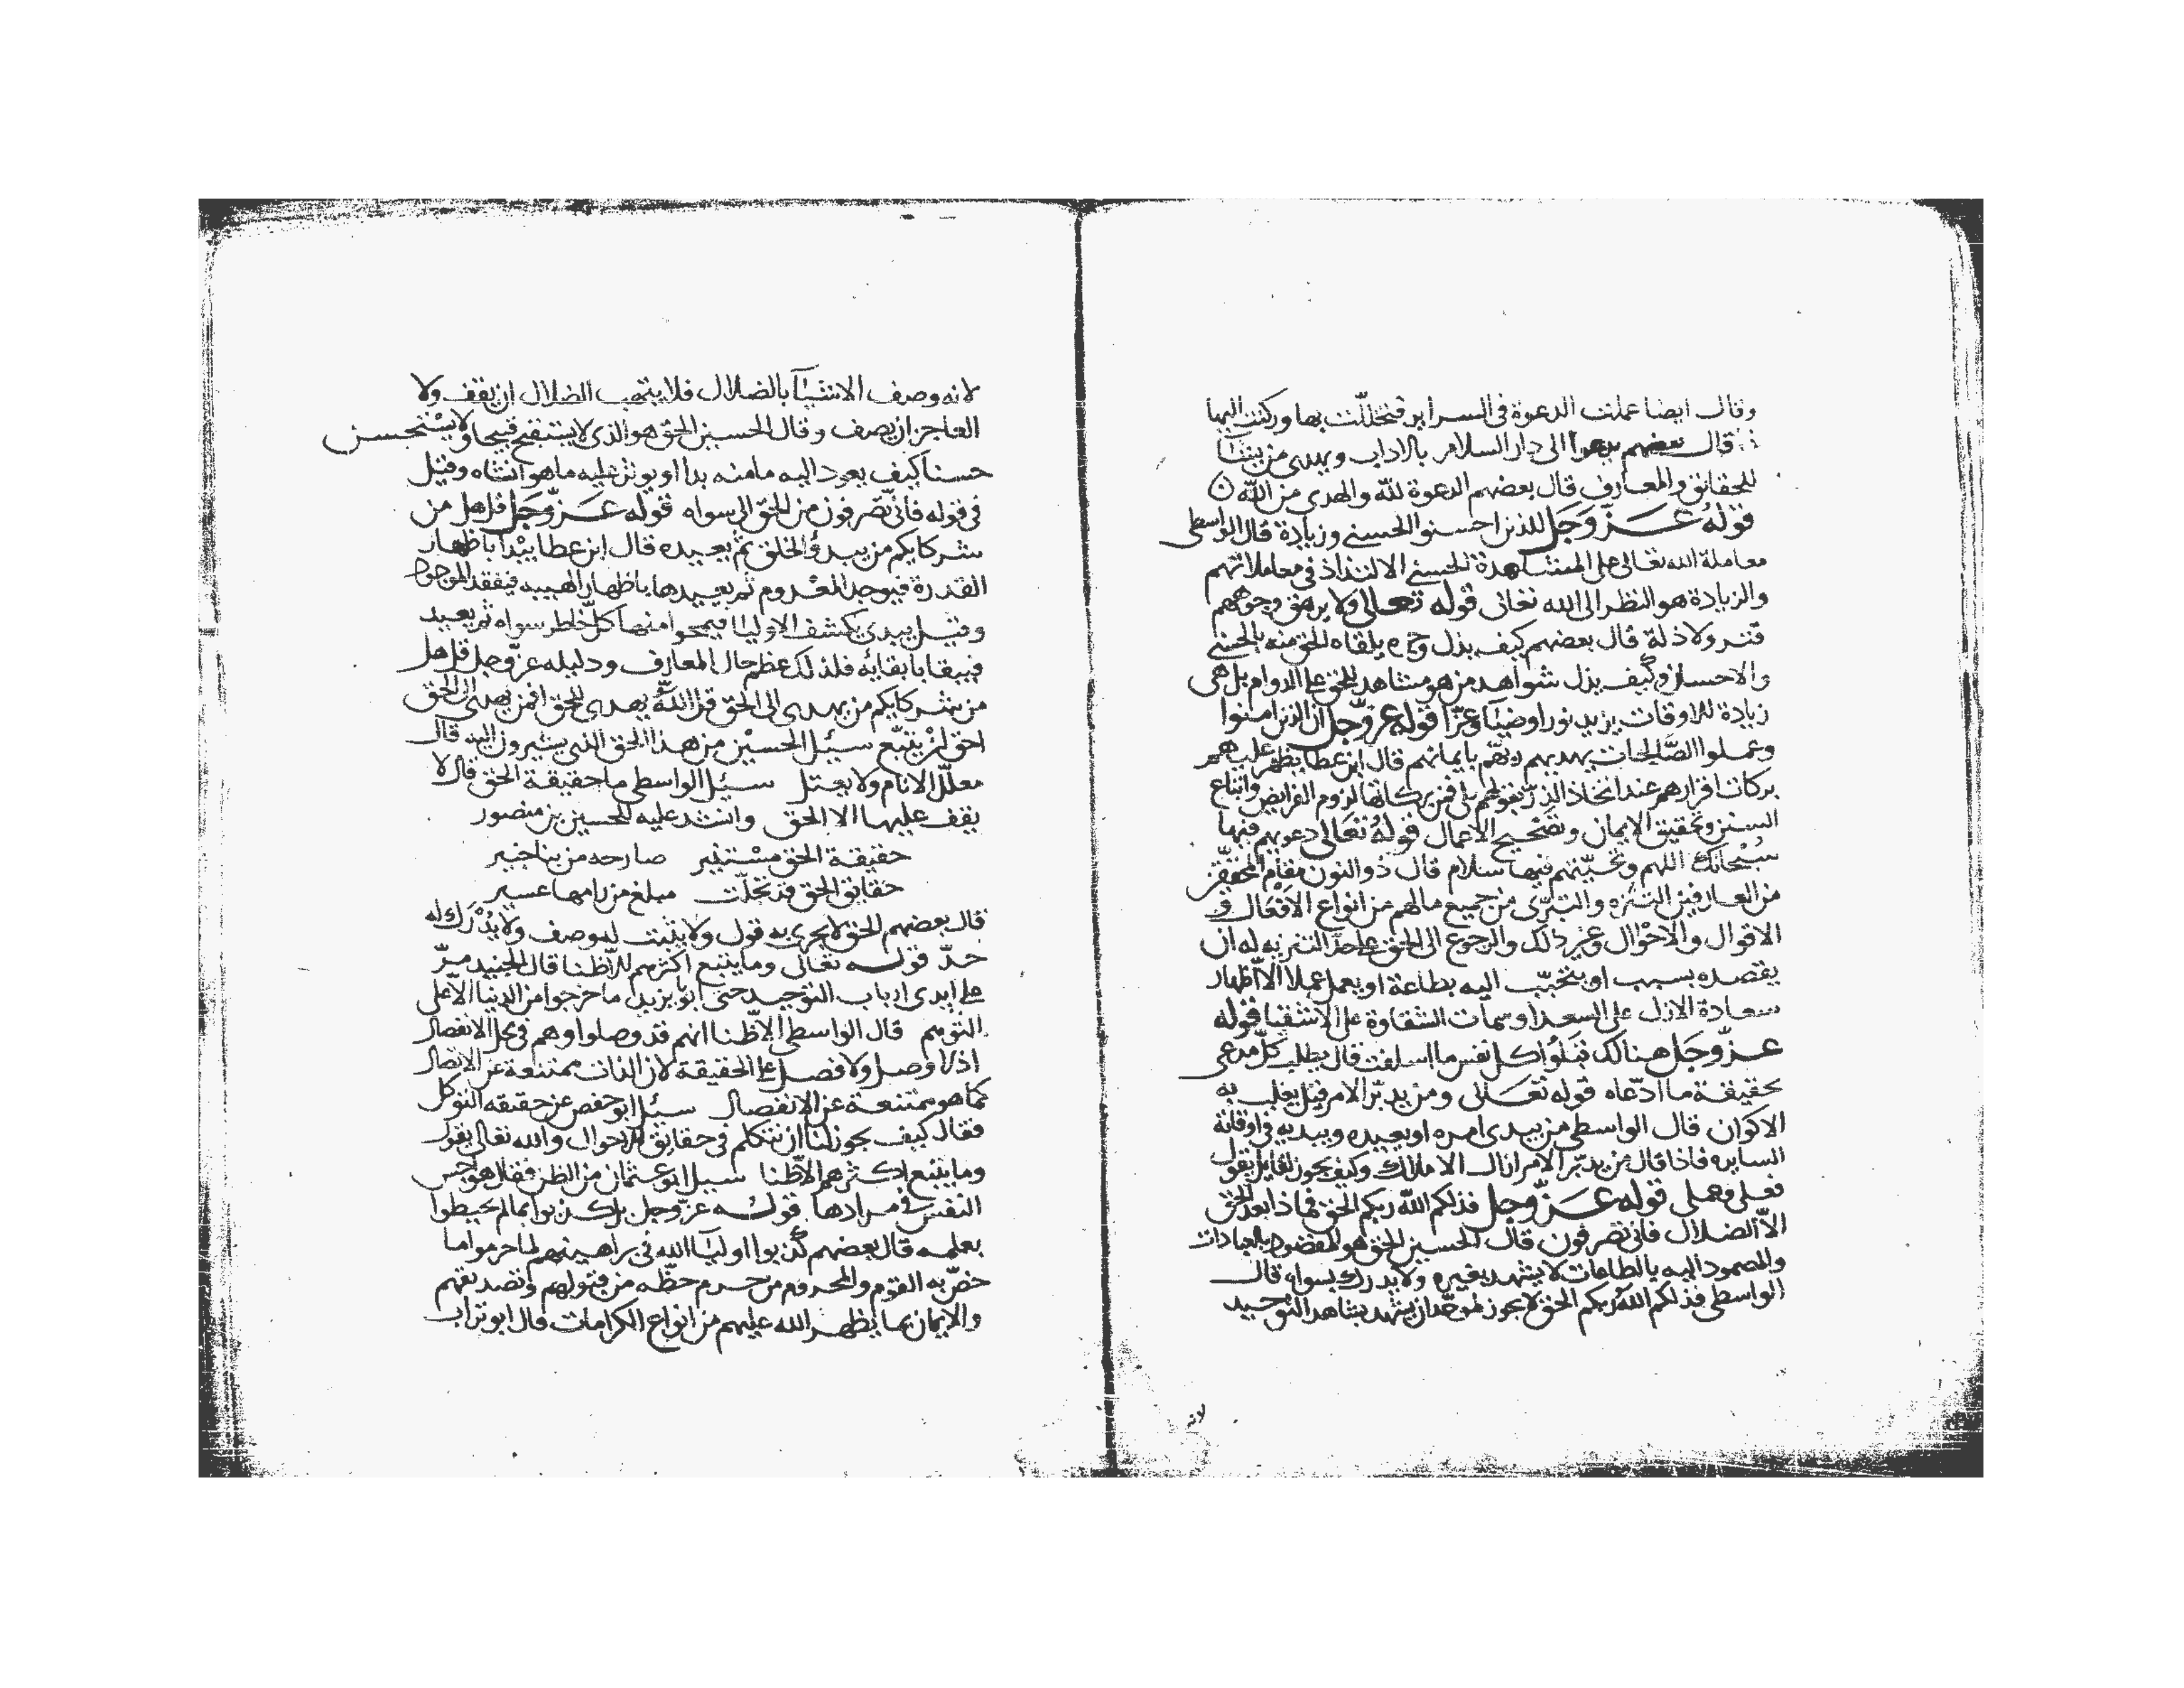 وقال ايضا عملت الدعوة في السراير فتحللت بها وركنت اليها
قال بعضهم يدعوا الى دار السلام بالاداب ويهدى من يشا
للحقائق والمعارف قال بعضهم الدعوة لله والهدى من الله
قوله عز وجل للذين احسنوا الحسنى وزيادة قال الواسطى
معاملة الله تعالى على المشاهدة الحسنى الالتذاذ في معاملاتهم
والزيادة هو النظر الى الله تعالى قوله تعالى ولا يرهق وجوههم
قتر ولا ذلة قال بعضهم كيف يذل وجه يلقاه الحق منه بالحسنى
والاحسان وكيف يذل شواهد من هو مشاهد للحق على الدوام بل هى
زيادة للاوقات يزيد نورا وضيآ وعزا قوله عز وجل ان الذين امنوا
وعملوا الصالحات يهديهم ربهم بايمانهم قال ابن عطا يظهر عليهم
بركات اقرارهم عند اتخاذ الذر بقولهم بلى فمن بركاتها لزوم الفرايض واتباع
السنن وتحقيق الايمان وتصحيح الاعمال قوله تعالى دعويهم فيها
سبحانك اللهم وتحيتهم فيها سلام قال ذو النون مقام المحققين
من العارفين التنزه والتبرى من جميع مالهم من انواع الافعال و
الاقوال والاحوال وغير ذلك والرجوع الى الحق على حد التنزيه له ان
يقصده بسبب او يتحبب اليه بطاعة او يعمل عملا الا اظهار
سعادة الازل على السعدا وسمات الشقاوة على الاشقيا قوله
عز وجل هنالك تبلوا كل نفس ما اسلفت قال يطلب كل مدعى
بحقيقة ما ادعاه قوله تعالى ومن يدبر الامر قيل يغلب به
الاكوان قال الواسطى من يبدى امره او يعيده ويبديه في اوقاته
السايره فاذا قال من يدبر الامر ازال الاملاك وكيف يجوز لقايل يقول
فعلى وعملى قوله عز وجل فذلكم الله ربكم الحق فماذا بعد الحق
الا الضلال فانى تصرفون قال الحسين الحق هو المقصود بالعبادات
والمصمود اليه بالطاعات لا يشهد بغيره ولا يدرك بسواه قال
الواسطى فذلكم الله ربكم الحق لا يجوز لموحد ان يشهد بشاهد التوحيد
لانه
لانه وصف الاشيآ بالضلال فلا يتهيب الضلال ان يقف ولا
العاجز ان يصف وقال الحسين الحق هو الذى لا يستقبح قبيحا ولا يستحسن
حسنا كيف يعود اليه ما منه بدا او يوثر عليه ما هو انشاه وقيل
في قوله فانى تصرفون من الحق الى سواه قوله عز وجل قل هل من
شركايكم من يبدؤ الخلق ثم يعيده قال ابن عطا يبدأ باظهار
القدرة فيوجد المعدوم ثم يعيدها باظهار الهيبه فيفقد الموجود
وقيل يبدى بكشف الاوليا فيمحوا منها كل خاطر سواه ثم يعيد
فيبقا بابقايه فلذلك عظم حال المعارف ودليله عز وجل قل هل
من شركايكم من يهدى الى الحق قل الله يهدى للحق افمن يهدى الى الحق
احق ان يتبع سئل الحسين من هذا الحق الذى يشيرون اليه قال
معلل الانام ولا يعتل سئل الواسطى ما حقيقة الحق قال لا
يقف عليها الا الحق وانشد عليه للحسين بن منصور
حقيقة الحق مستنير صارحه من بنا خبير
حقائق الحق قد تجلت مبلغ من رامها عسير
قال بعضهم الحق لا يجرى به قول ولا يثبت له وصف ولا يدرك له
حد قوله تعالى وما يتبع اكثرهم الا ظنا قال الجنيد مر
على ايدى ارباب التوحيد حتى ابو يزيد ما خرجوا من الدنيا الا على
التوهم قال الواسطى الا ظنا انهم قد وصلوا وهم في محل الانفصال
اذ لا وصل ولا فصل على الحقيقة لان الذات ممتنعة عن الاتصال
كما هو ممتنعة عن الانفصال سئل ابو حفص عن حقيقه التوكل
فقال كيف يجوز لنا ان نتكلم في حقايق الاحوال والله تعالى يقول
وما يتبع اكثرهم الا ظنا سيل ابو عثمان من الظن فقال هواجس
النفس في مرادها قوله عز وجل بل كذبوا بما لم يحيطوا
بعلمه قال بعضهم كذبوا اوليآ الله في براهينهم لما حرموا ما
خص به القوم والمحروم من حرم حظه من قبولهم وتصديقهم
والايمان بما يظهر الله عليهم من انواع الكرامات قال ابو تراب